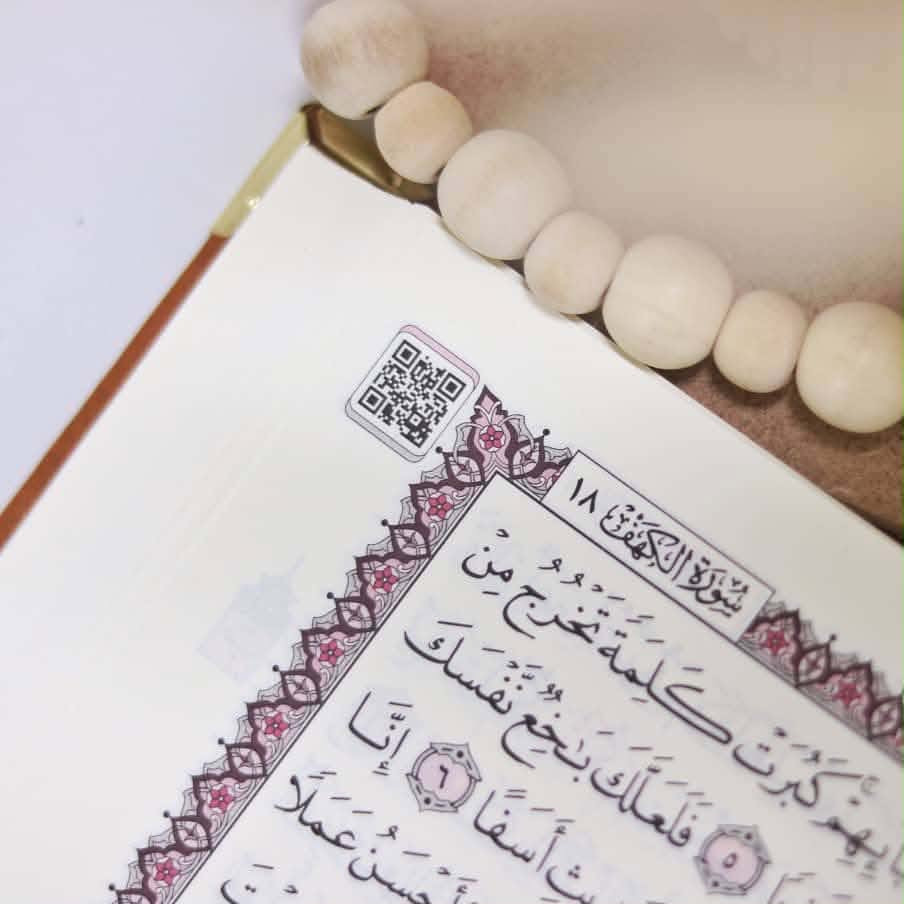 سُورَةُ الكَهْفِ ١٨
كَبُرَتْ كَلِمَةً تَخْرُجُ مِنْ
٥ فَلَعَلَّكَ بَٰخِعٌ نَّفْسَكَ
أَسَفًا ٦ إِنَّا
أَحْسَنُ عَمَلًا